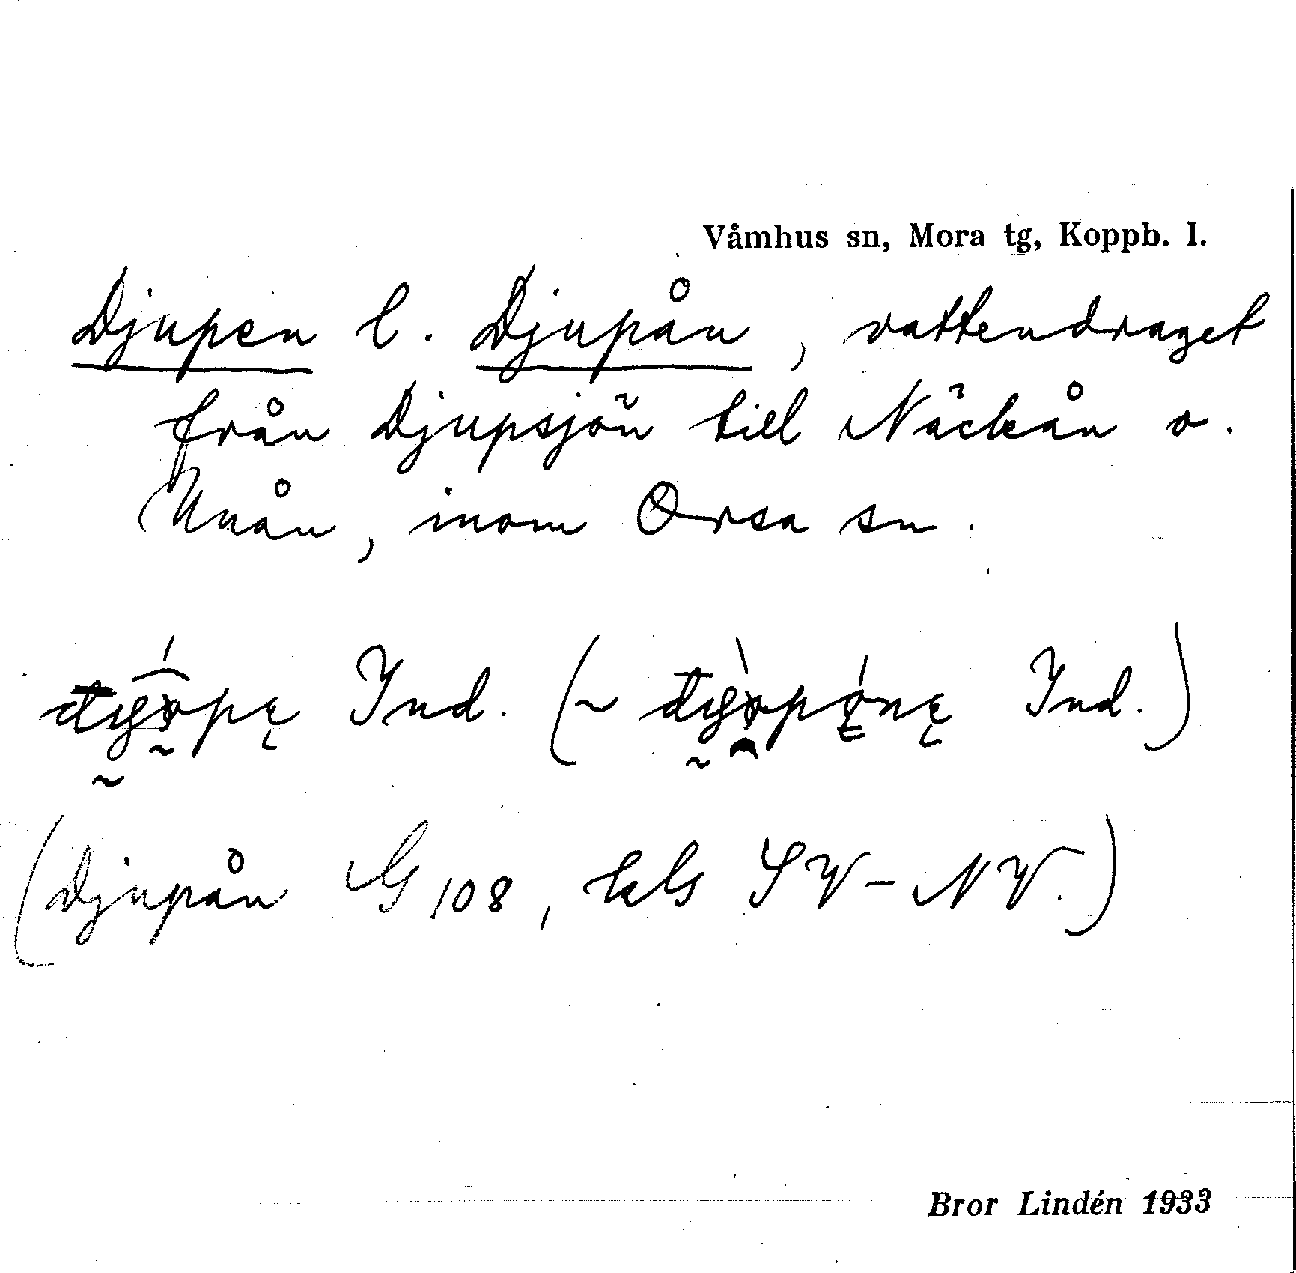 Våmhus sn, Mora tg, Koppb. l.
Djupen l. Djupån, vattendraget
från Djupsjön till Näckån o.
Unån, inom Orsa sn.
Ind. (~ Ind.)
(Djupån G 108, kls SV–NV.)
Bror Lindén 1933